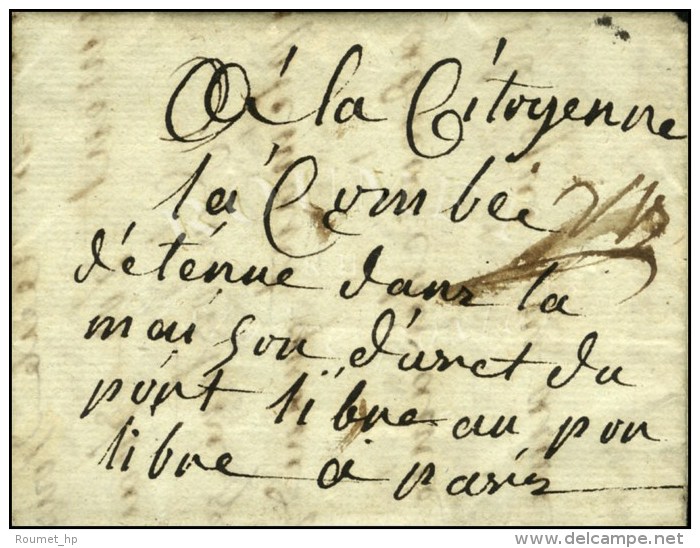 A la Citoyenne
la Combe
détenue dans la
mai son d'aret du
port libre au por
libre a paris
Roumet_hp
delcampe.net